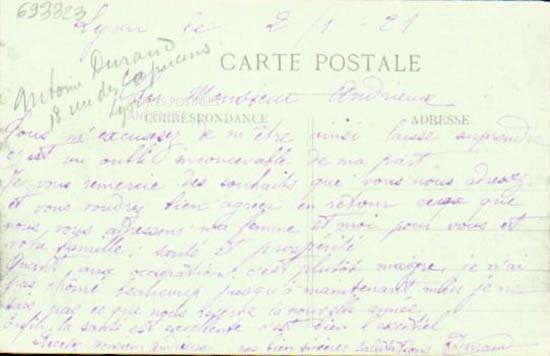 693323
Lyon le 2/1-21
Antoine Durand
18 rue des Capucins
Lyon
CARTE POSTALE
Monsieur Andrieux
CORRESPONDANCE
ADRESSE
Vous m'excuserez de m'être ainsi laissé surprendre
c'est un oubli inconcevable de ma part
Je vous remercie des souhaits que vous nous adressez
et vous voudrez bien agréer en retour ceux que
nous vous adressons ma femme et moi pour vous et
votre famille; santé et prospérité
Quant aux occupations, c'est plutôt maigre, je n'ai
pas chômé beaucoup jusqu'à maintenant mais je ne
sais pas ce que nous réserve la nouvelle année.
Enfin la santé est excellente c'est bien l'essentiel
Recevez monsieur Andrieux nos bien sincères salutations Durand